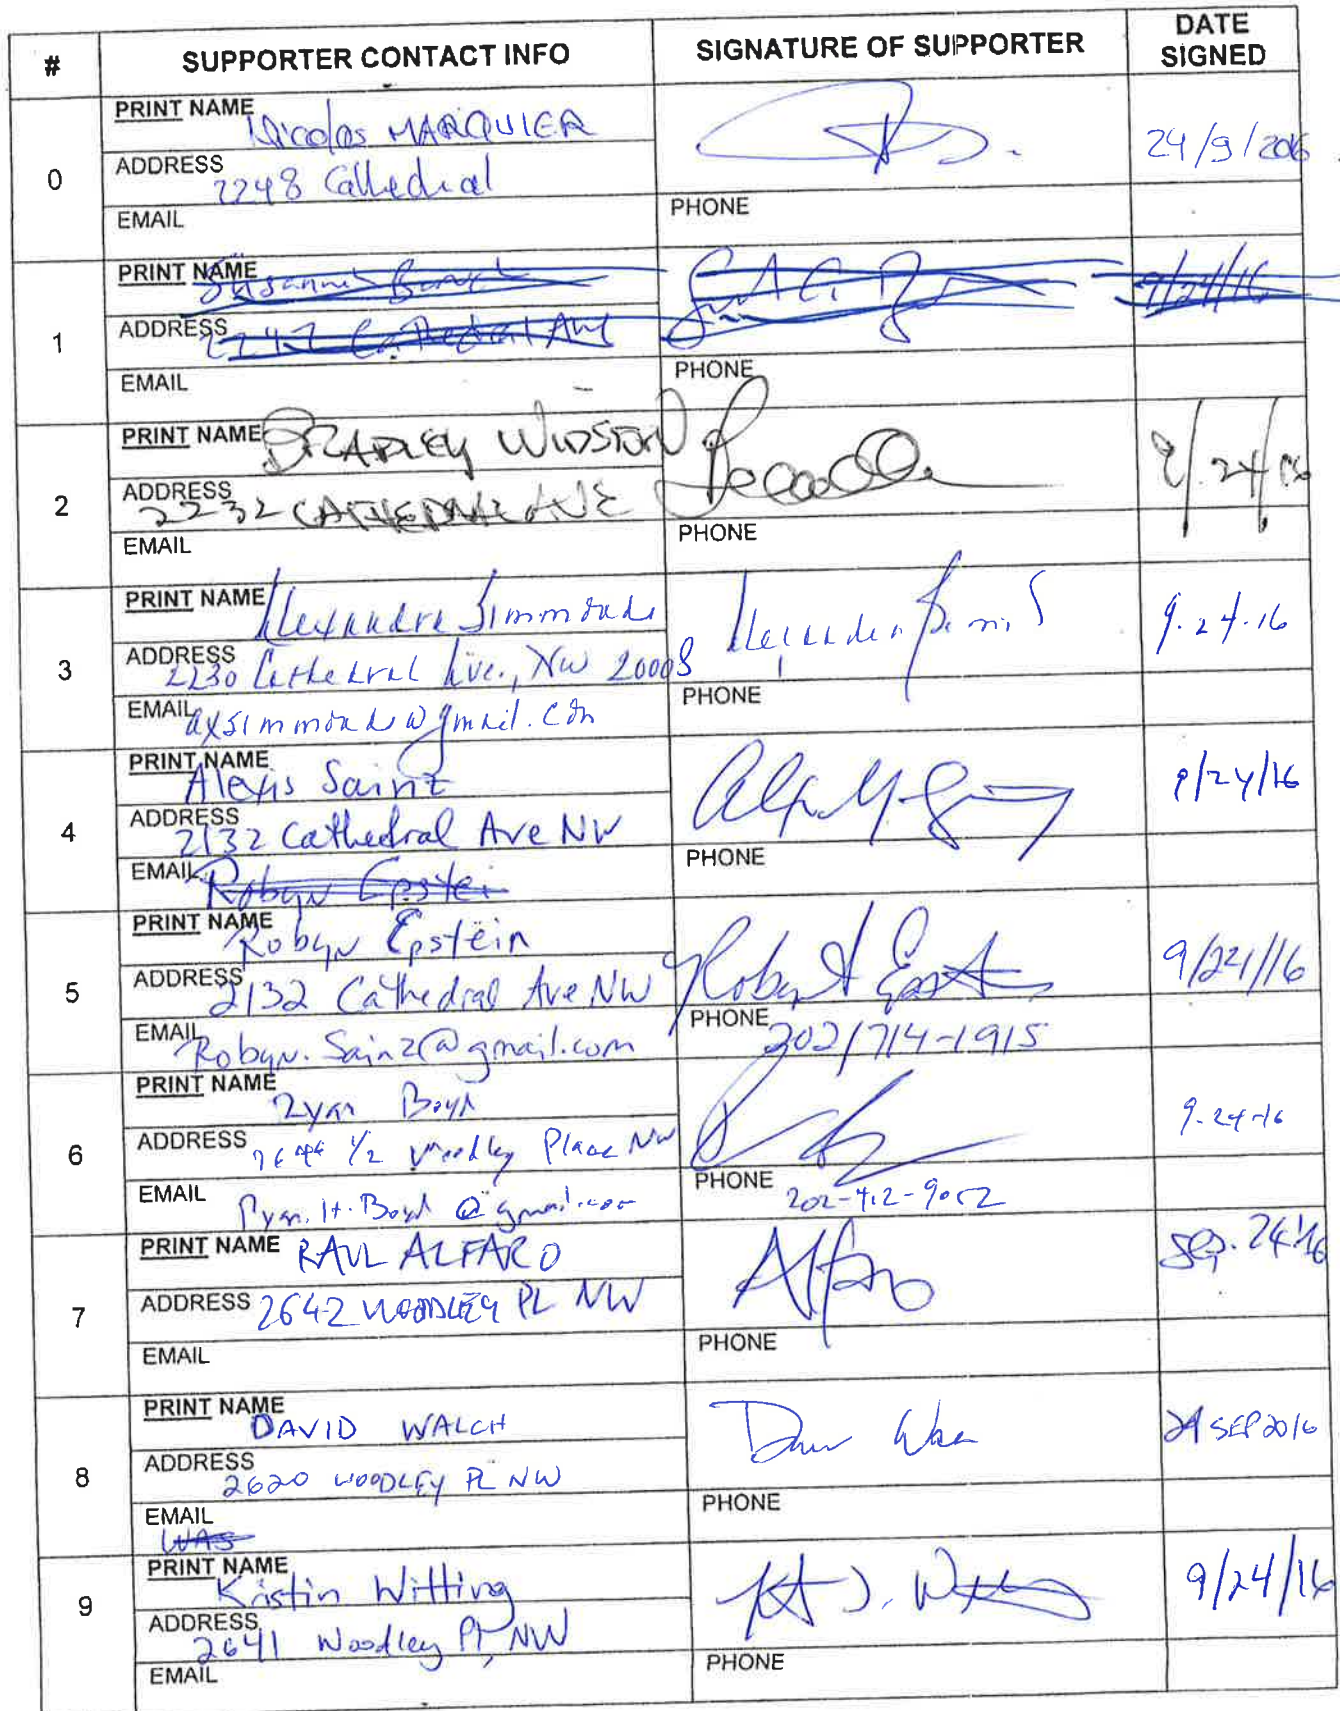 # SUPPORTER CONTACT INFO SIGNATURE OF SUPPORTER DATE SIGNED
0
PRINT NAME Nicolas MARQUIER
24/9/2016
ADDRESS 2248 Cathedral
EMAIL
PHONE
1
PRINT NAME
9/24/16
ADDRESS 2242 Cathedral Ave
EMAIL
PHONE
2
PRINT NAME BRADLEY WINSTON
9/24/16
ADDRESS 2232 CATHEDRAL AVE
EMAIL
PHONE
3
PRINT NAME Alexandra Simmonds
9.24.16
ADDRESS 2230 Cathedral Ave., NW 20008
EMAIL axsimmonds@gmail.com
PHONE
4
PRINT NAME Alexis Sainz
9/24/16
ADDRESS 2132 Cathedral Ave NW
EMAIL Robyn Epstei
PHONE
5
PRINT NAME Robyn Epstein
9/24/16
ADDRESS 2132 Cathedral Ave NW
EMAIL Robyn.Sainz@gmail.com
PHONE 202/714-1915
6
PRINT NAME Ryan Boyd
9-24-16
ADDRESS 1/2 Woodley Place NW
EMAIL Ryan.H.Boyd@gmail.com
PHONE 202-412-9052
7
PRINT NAME RAUL ALFARO
Alfaro
Sep. 24'16
ADDRESS 2642 WOODLEY PL NW
EMAIL
PHONE
8
PRINT NAME DAVID WALCH
24 SEP 2016
ADDRESS 2620 WOODLEY PL NW
EMAIL WAS
PHONE
9
PRINT NAME Kristin Witting
9/24/16
ADDRESS 2641 Woodley Pl, NW
EMAIL
PHONE